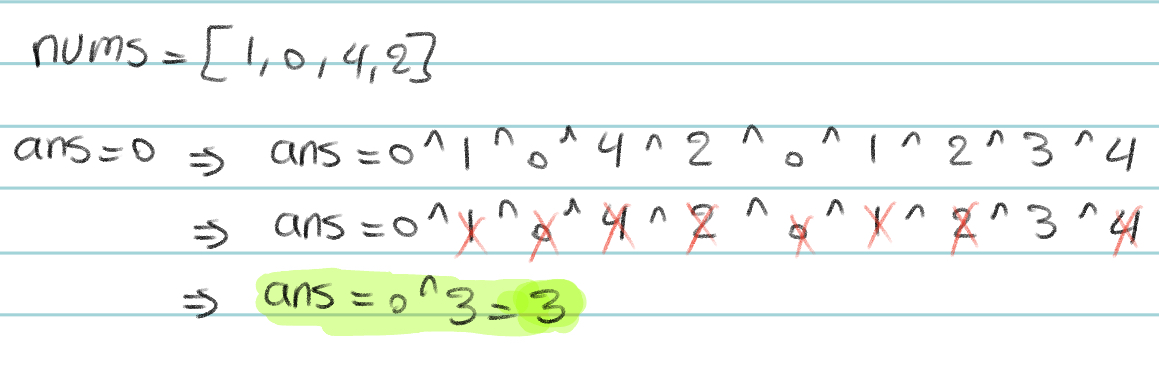 nums = [1, 0, 4, 2]
ans = 0 ⇒ ans = 0 ^ 1 ^ 0 ^ 4 ^ 2 ^ 0 ^ 1 ^ 2 ^ 3 ^ 4
⇒ ans = 0 ^ 1 ^ 0 ^ 4 ^ 2 ^ 0 ^ 1 ^ 2 ^ 3 ^ 4
⇒ ans = 0 ^ 3 = 3